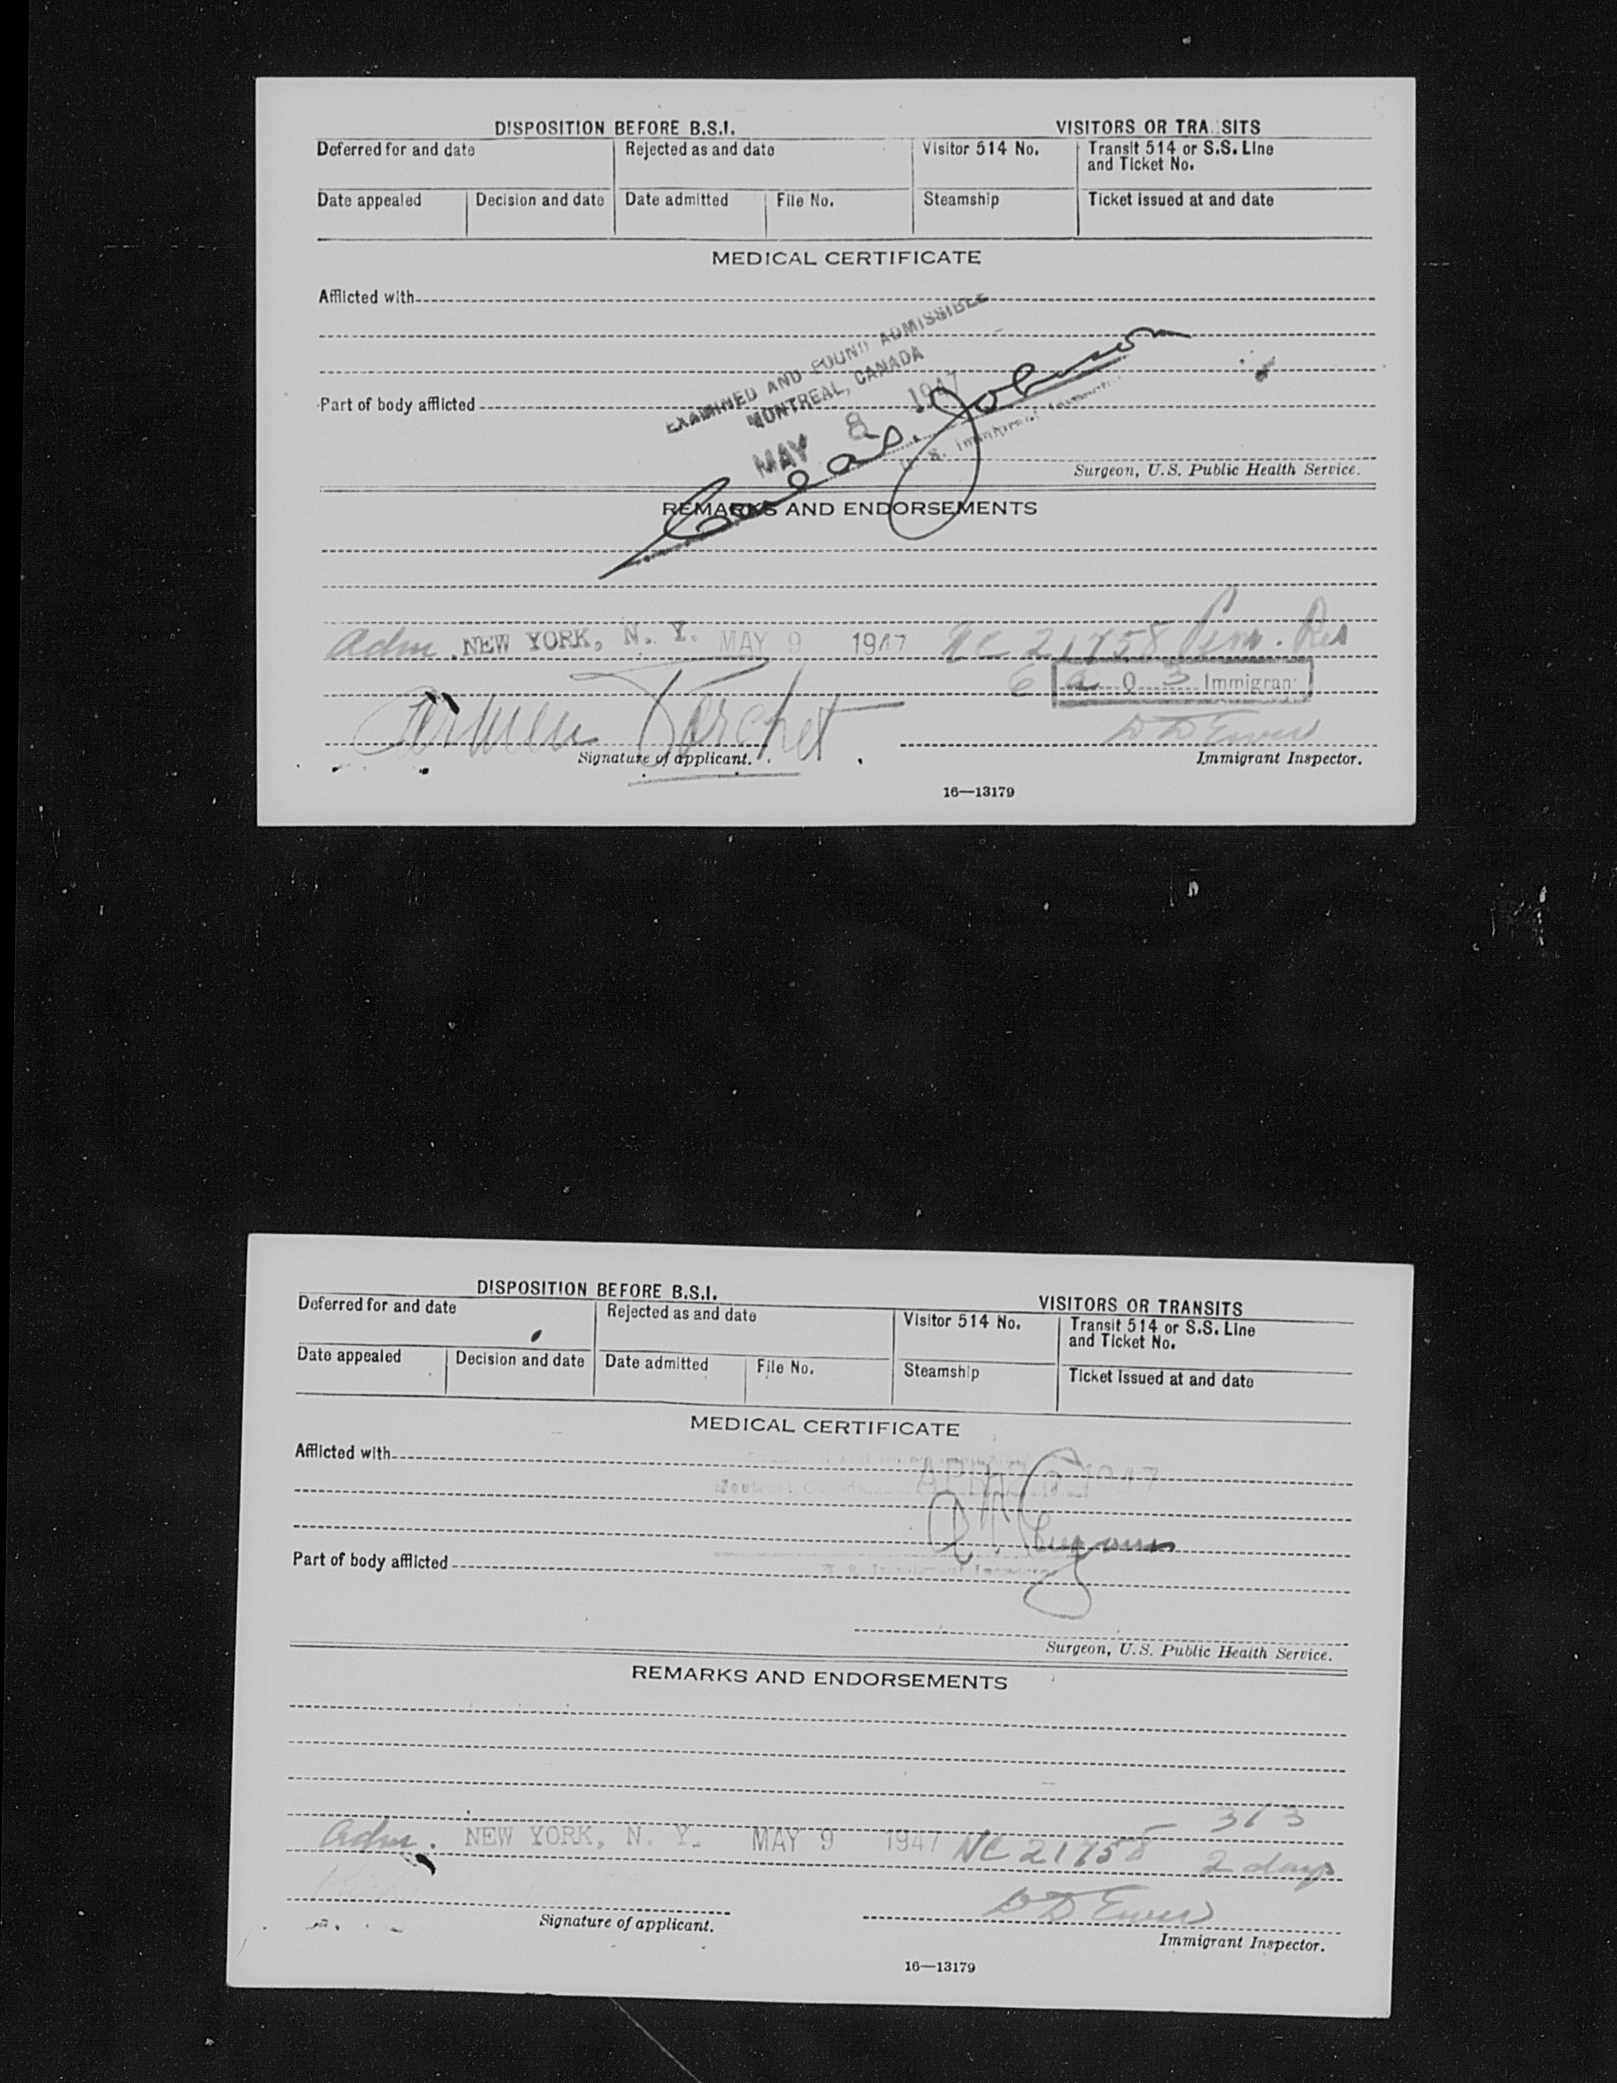 DISPOSITION BEFORE B.S.I. VISITORS OR TRA SITS
Deferred for and date Rejected as and date Visitor 514 No. Transit 514 or S.S. Line
and Ticket No.
Date appealed Decision and date Date admitted File No. Steamship Ticket issued at and date
MEDICAL CERTIFICATE
Afflicted with
EXAMINED AND FOUND ADMISSIBLE
MONTREAL, CANADA
Part of body afflicted
MAY 8 1947
Chas. Johnson
U. S. Immigrant Inspector
Surgeon, U.S. Public Health Service.
REMARKS AND ENDORSEMENTS
adm. NEW YORK, N. Y. MAY 9 1947 NC 21758 Perm. Res
6 a 0 3 Immigrant
Carmen Torchet
D D Ewer
Signature of applicant. Immigrant Inspector.
16—13179
DISPOSITION BEFORE B.S.I. VISITORS OR TRANSITS
Deferred for and date Rejected as and date Visitor 514 No. Transit 514 or S.S. Line
and Ticket No.
Date appealed Decision and date Date admitted File No. Steamship Ticket issued at and date
MEDICAL CERTIFICATE
Afflicted with
1947
Part of body afflicted
Surgeon, U.S. Public Health Service.
REMARKS AND ENDORSEMENTS
3(3
adm. NEW YORK, N. Y. MAY 9 1947 NC 21758 2 days
D D Ewer
Signature of applicant. Immigrant Inspector.
16—13179